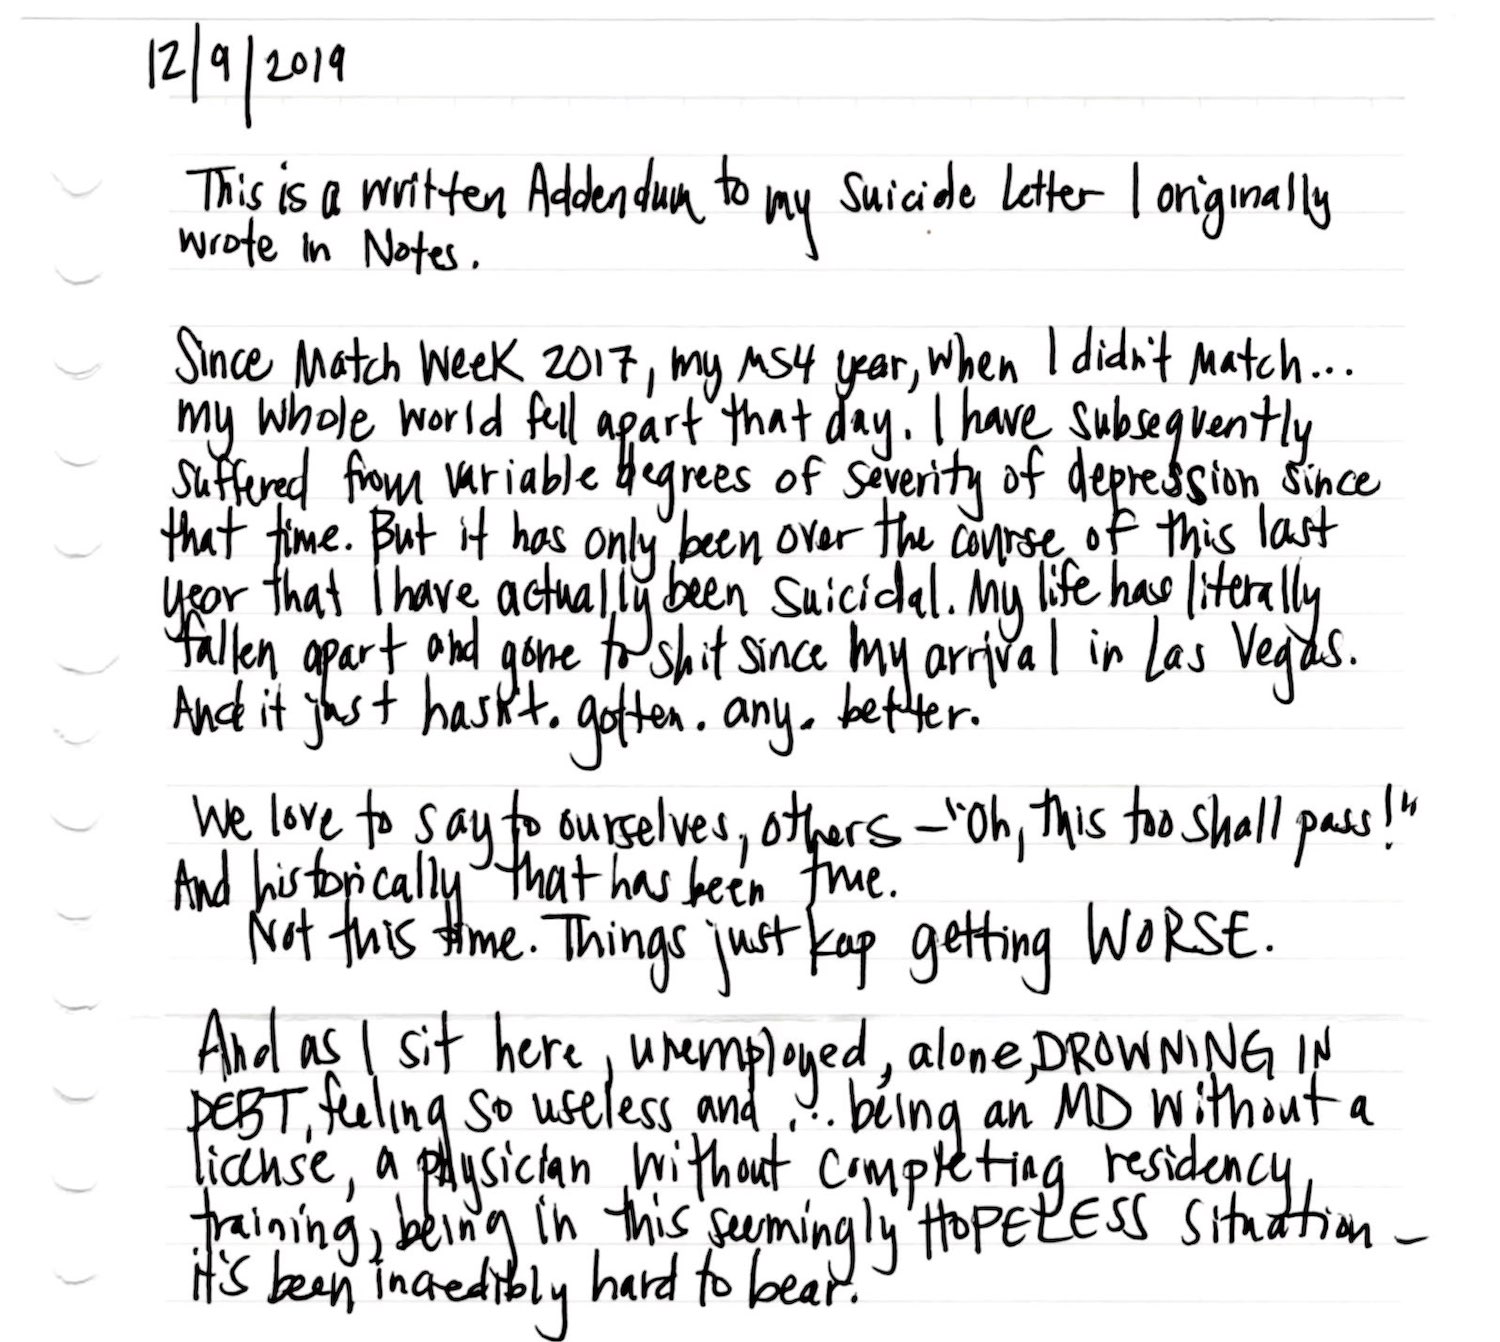 12/9/2019
This is a written Addendum to my Suicide Letter I originally
wrote in Notes.
Since Match Week 2017, my MS4 year, when I didn't match...
my whole world fell apart that day. I have subsequently
suffered from variable degrees of severity of depression since
that time. But it has only been over the course of this last
year that I have actually been suicidal. My life has literally
fallen apart and gone to shit since my arrival in Las Vegas.
And it just hasn't. gotten. any. better.
We love to say to ourselves, others – "Oh, this too shall pass!"
And historically that has been true.
Not this time. Things just kep getting WORSE.
And as I sit here, unemployed, alone, DROWNING IN
DEBT, feeling so useless and ... being an MD without a
license, a physician without completing residency
training, being in this seemingly HOPELESS situation –
it's been incredibly hard to bear.